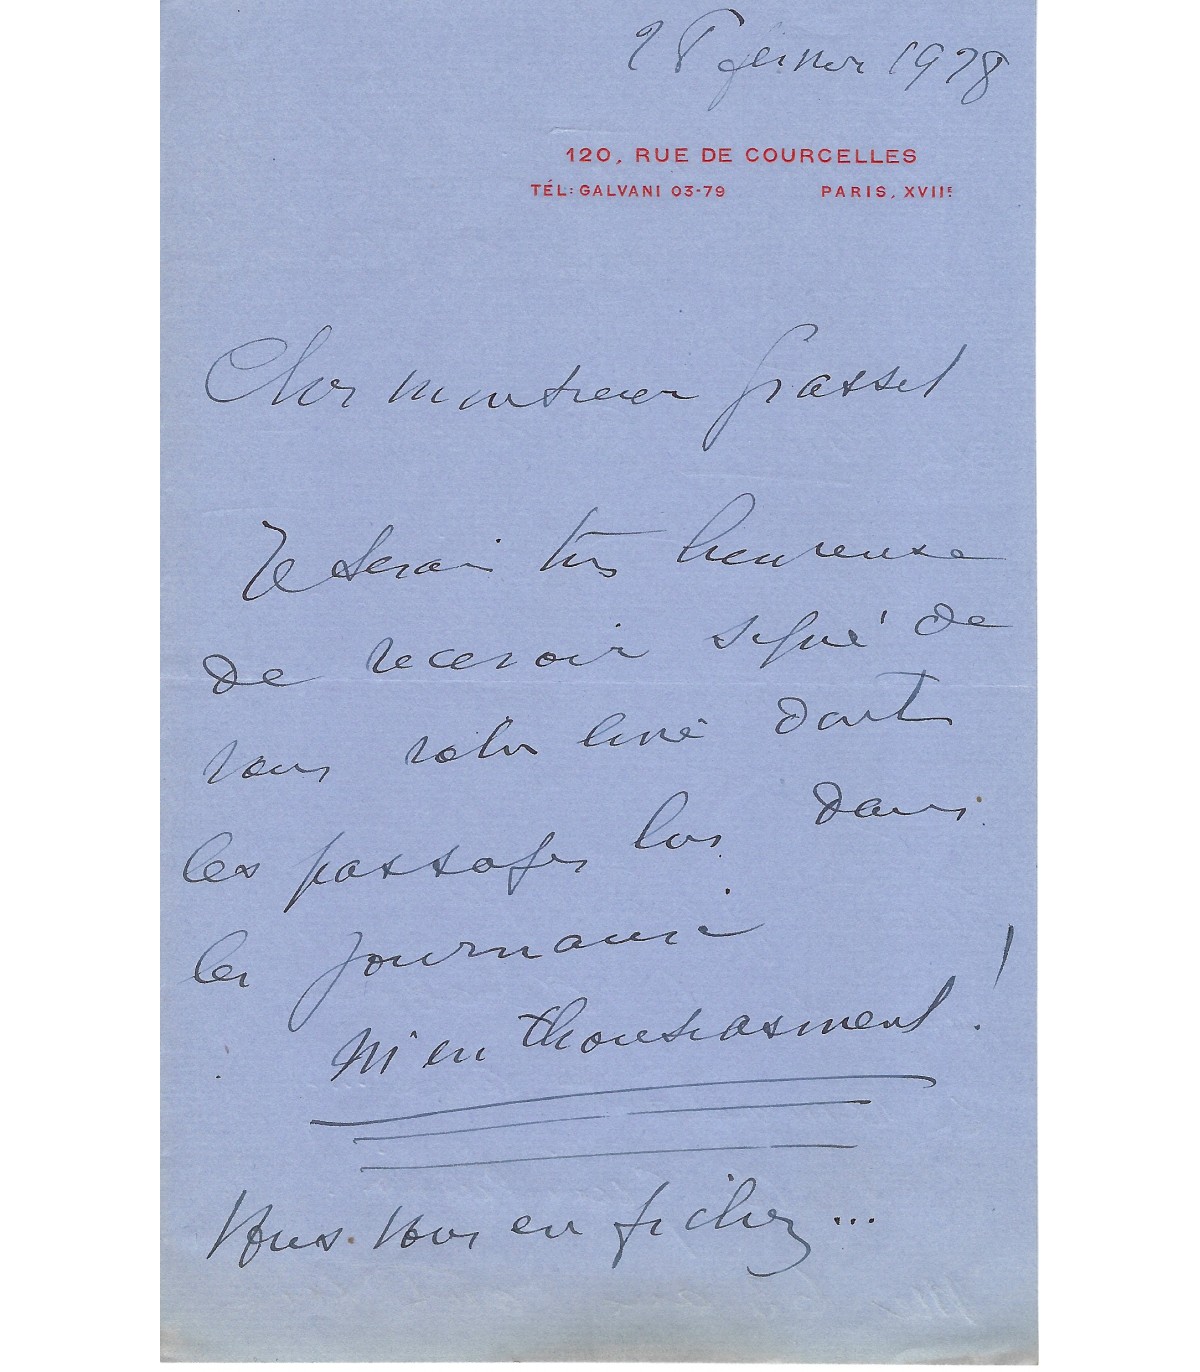 28 février 1928
120, RUE DE COURCELLES
TÉL: GALVANI 03-79 PARIS, XVIIE
Cher monsieur Grassel
Je serai très heureuse
de recevoir signé de
vous votre livre dont
les passages lus dans
les journaux
m'enthousiasment!
Vous vous en fichez...